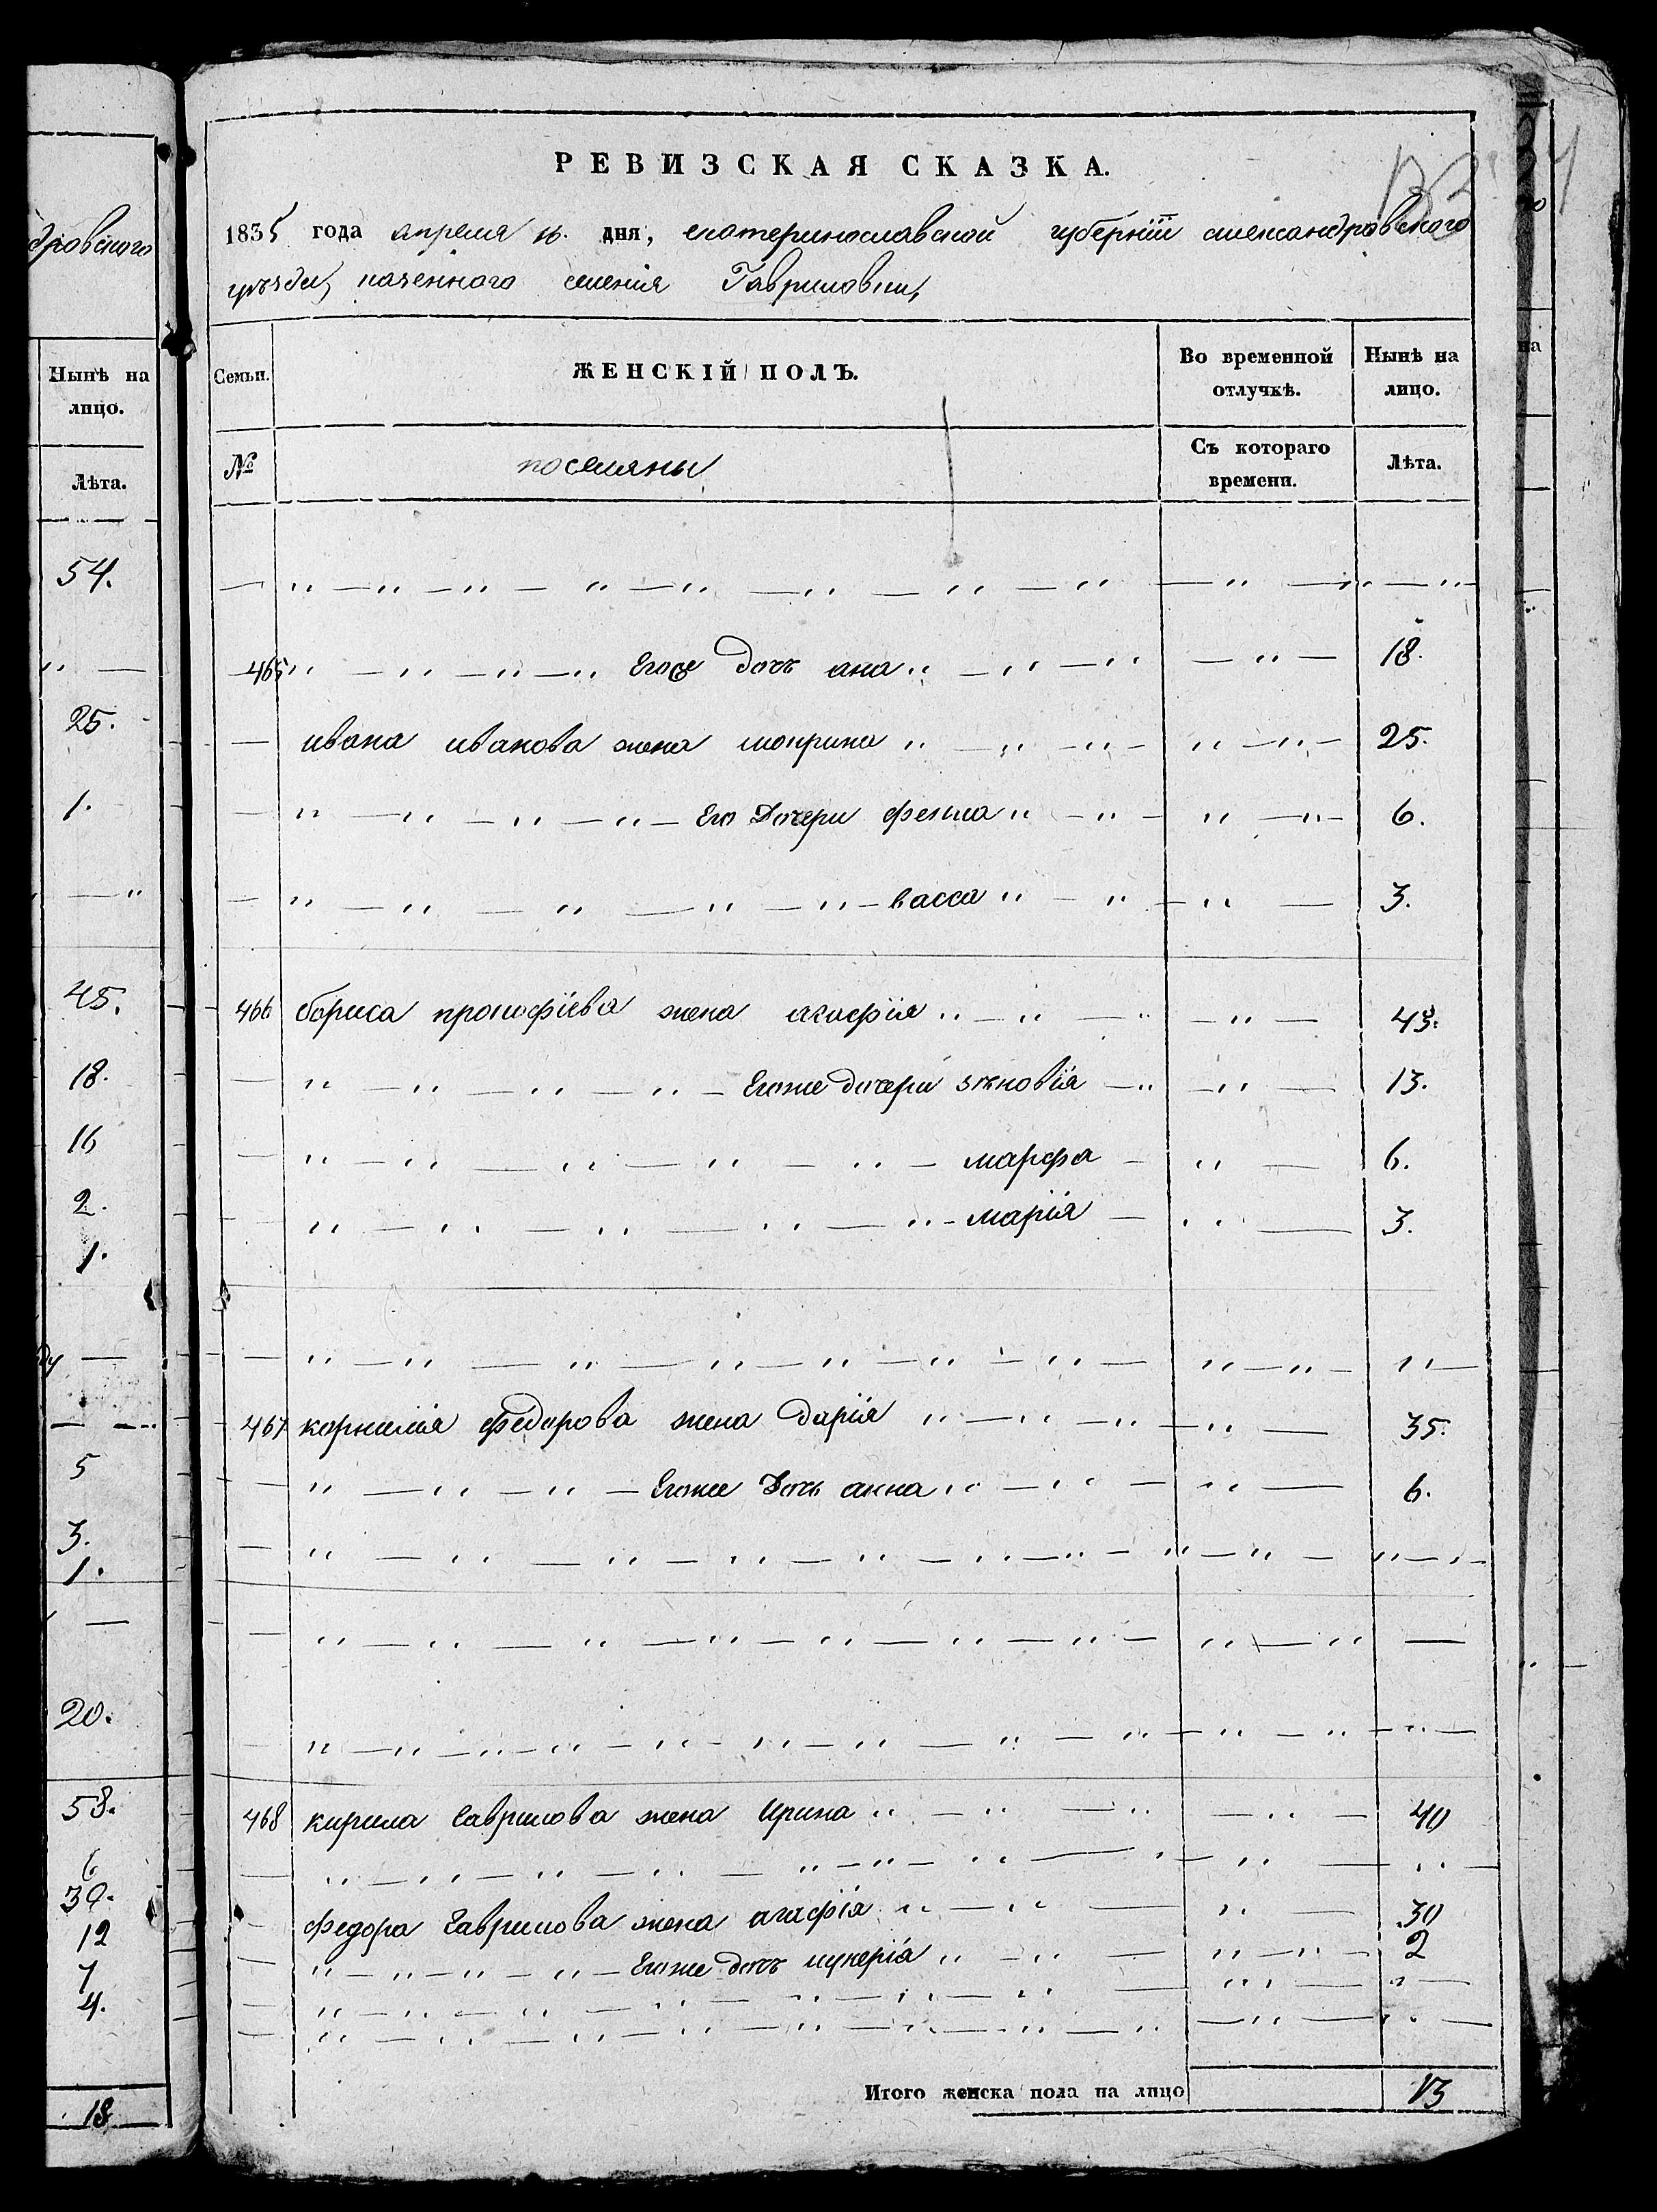 дровского
Нынѣ на
лицо.
Лѣта.
54.
25.
1.
45.
18.
16
2.
1.
5
3.
1.
20.
58.
6
30.
12
7
4.
18
РЕВИЗСКАЯ СКАЗКА.
1835 года апреля дня, екатеринославской губернїи александровского
уѣзда, казенного селенїя Гавриловки,
Семьи. ЖЕНСКІЙ ПОЛЪ. Во временной отлучкѣ. Нынѣ на лицо.
№ поселяны Съ котораго времени. Лѣта.
— „ — „ — „ — „ — „ — „ — „ — „ — „ — „ — „ —
465 „ — „ — „ — „ Егоже дочь ана „ — „ — „ — „ — 18.
— ивана иванова жена мокрина „ — „ — „ — „ — „ — 25.
— „ — „ — „ — „ — Его Дочери фекла „ — „ — „ — „ — 6.
— „ — „ — „ — „ — „ — васса „ — „ — „ — 3.
466 бориса прокофїева жена агафїя „ — „ — — „ — 43.
— „ — „ — „ — „ — Егоже дочери зѣновїя — „ — „ — 13.
— „ — „ — „ — „ — „ — марфа — „ — 6.
— „ — „ — „ — „ — „ — марїя — „ — 3.
— „ — „ — „ — „ — „ — „ — „ — „ — „ — „ —
467 корнилїя федорова жена дарїя „ — „ — „ — „ — 35.
— „ — „ — „ — Егоже Дочь анна „ — „ — „ — 6.
— „ — „ — „ — „ — „ — „ — „ — „ — „ — „ — „
— „ — „ — „ — „ — „ — „ — „ — „ — „ —
— „ — „ — „ — „ — „ — „ — „ — „ — „ — „ — „ — „ —
468 кирила Гаврилова жена Ирина „ — „ — „ — „ — 40
— „ — „ — „ — „ — „ — „ — „ — „ — „ — „ —
— Федора Гаврилова жена агафїя „ — „ — „ — 30
— „ — „ — „ — „ — Егоже дочь лукерїа „ — „ — „ — „ — 2
— „ — „ — „ — „ — „ — „ — „ — „ — „ —
— „ — „ — „ — „ — „ — „ — „ — „ — „ — „ —
Итого женска пола на лицо 13